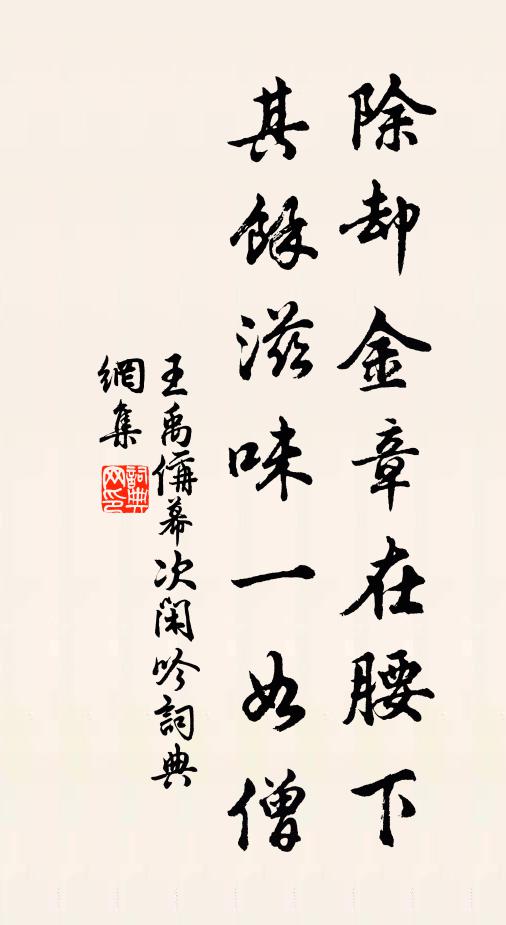 除却金章在腰下
其餘滋味一如僧
王禹偁幕次閑吟詞典
網集
詞典網印